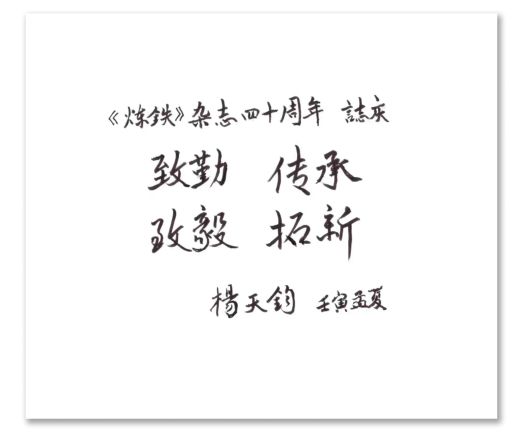 《炼铁》杂志四十周年 誌庆
致勤 传承
致毅 拓新
楊天鈞 壬寅孟夏